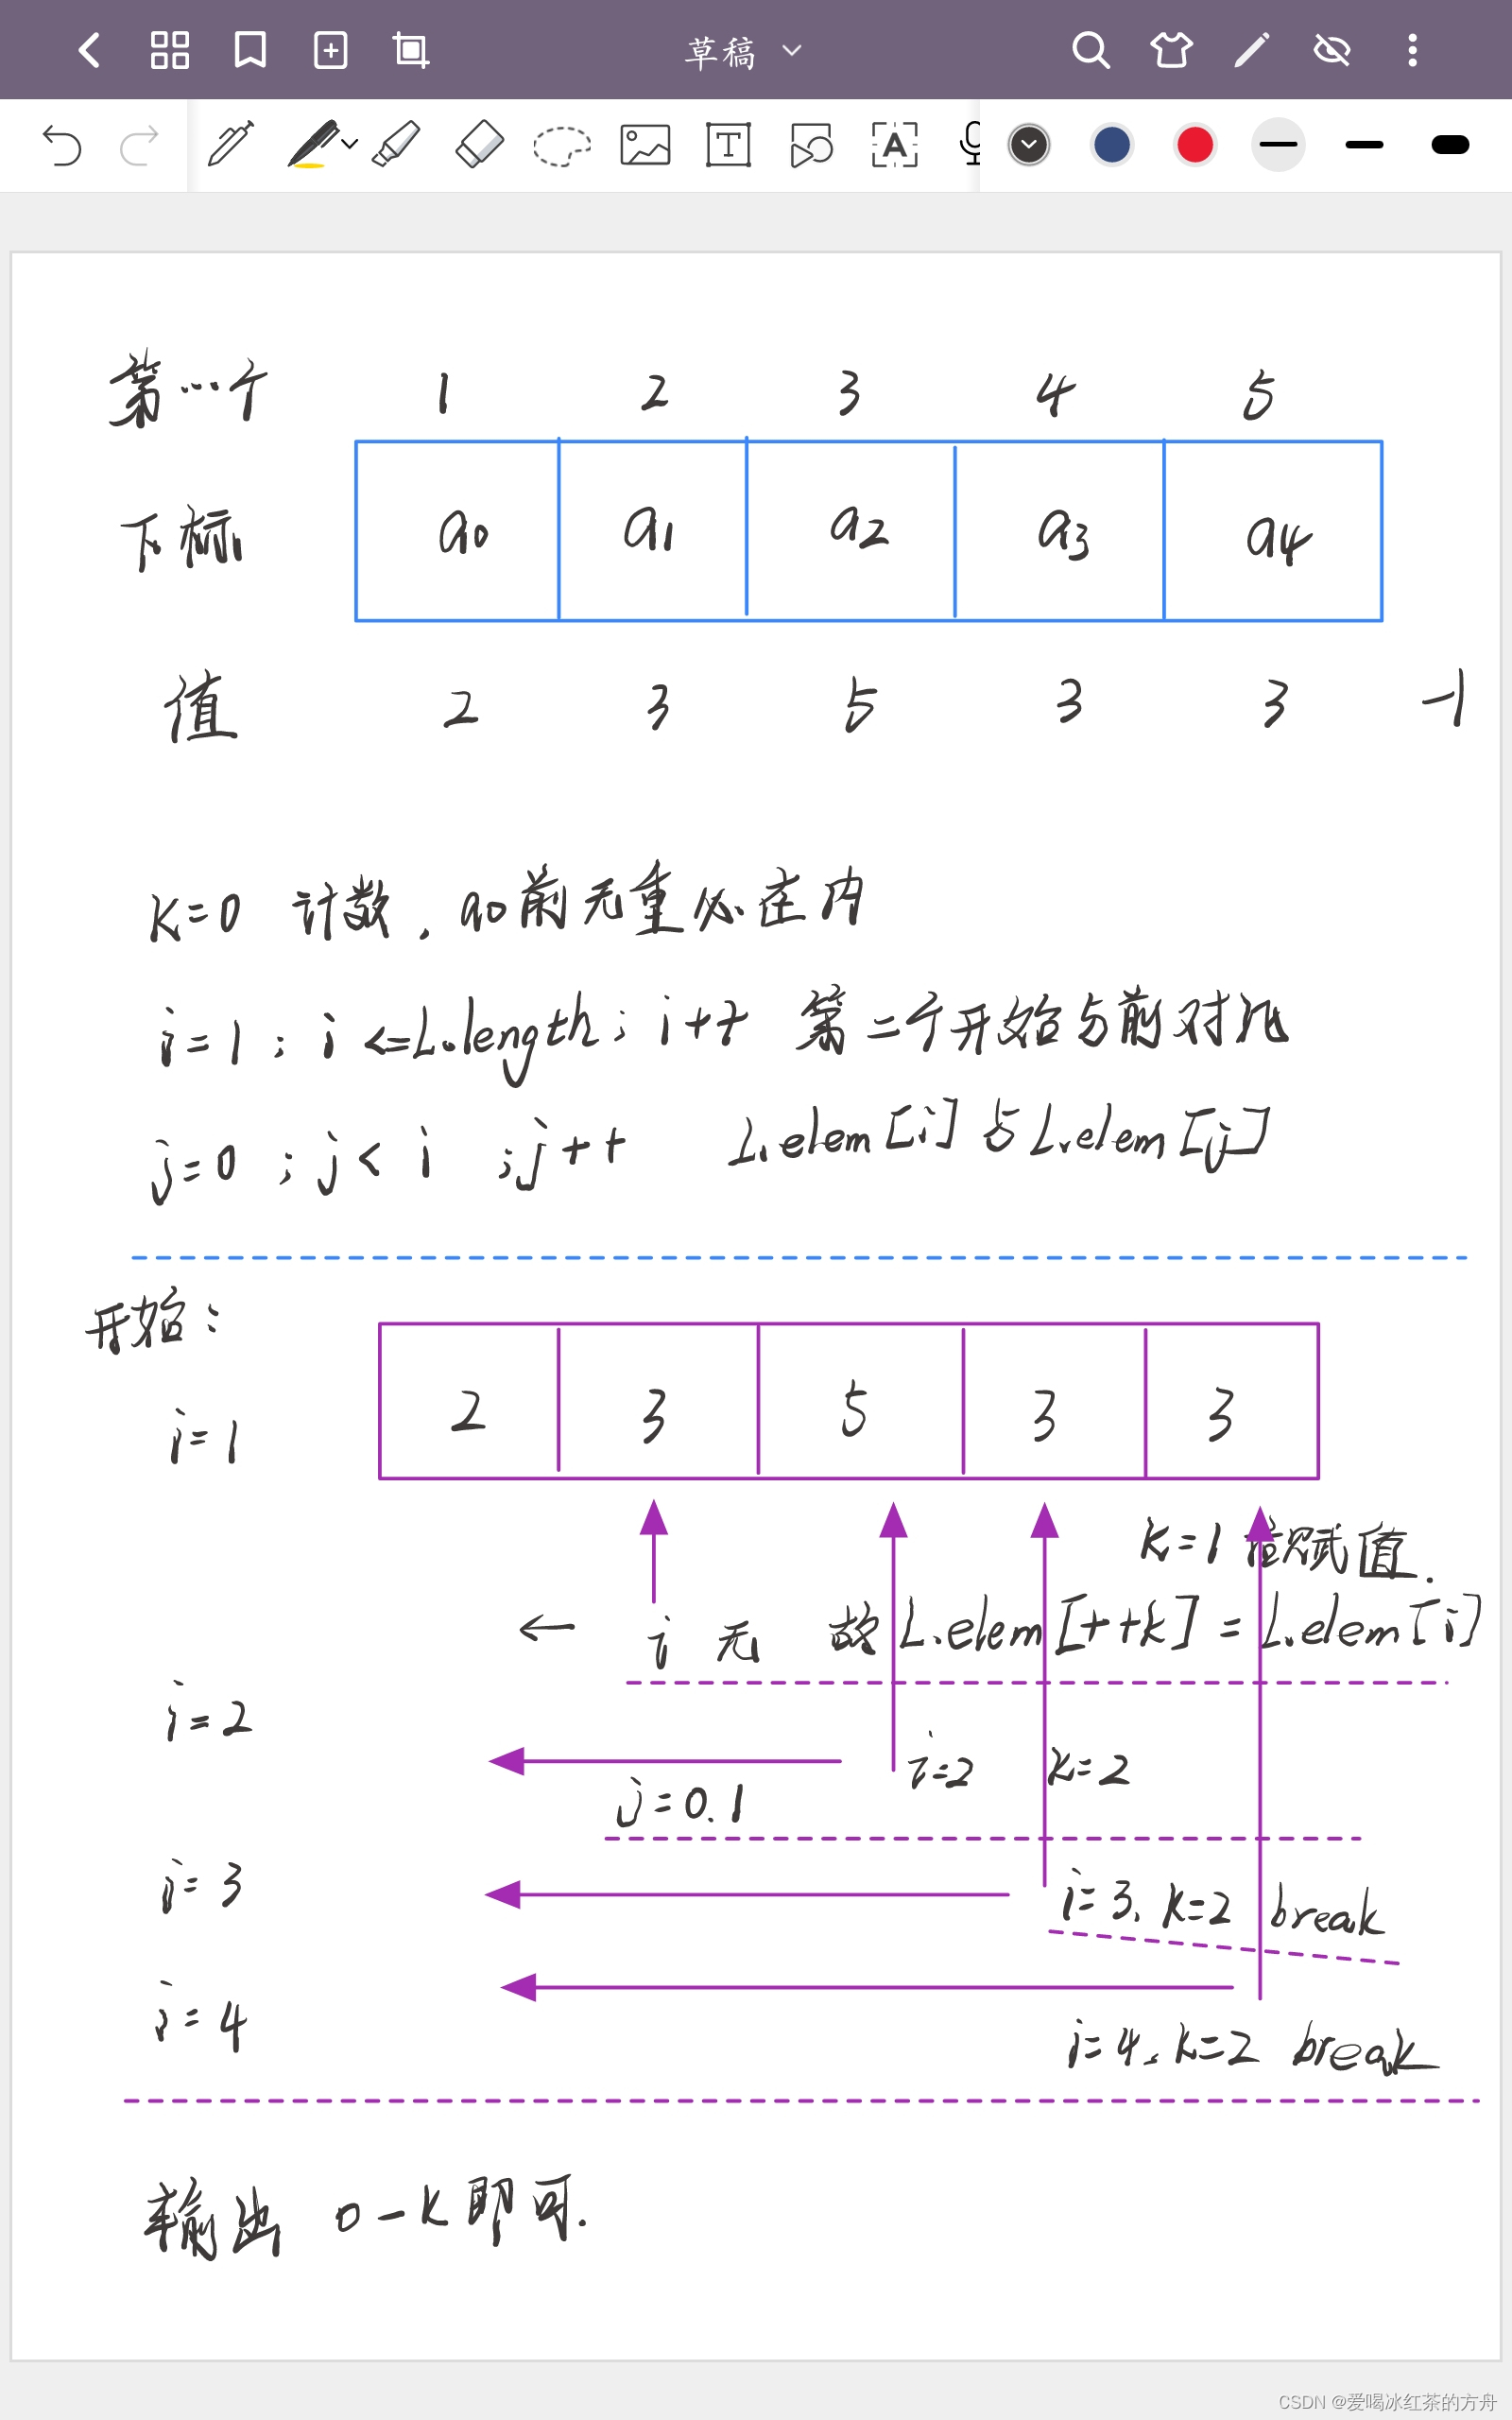 草稿
T
A
第…个 1 2 3 4 5
下标 a0 a1 a2 a3 a4
值 2 3 5 3 3 -1
K=0 计数, a0前无重必在内
i=1; i<=L.length; i++ 第二个开始与前对比
j=0; j<i ;j++ L.elem[i]与L.elem[j]
开始:
i=1 2 3 5 3 3
k=1 被赋值.
← i 无 故L.elem[++k]=L.elem[i]
i=2
i=2 k=2
j=0.1
i=3
i=3. k=2 break
i=4
i=4. k=2 break
输出 0-k即可.
CSDN @爱喝冰红茶的方舟